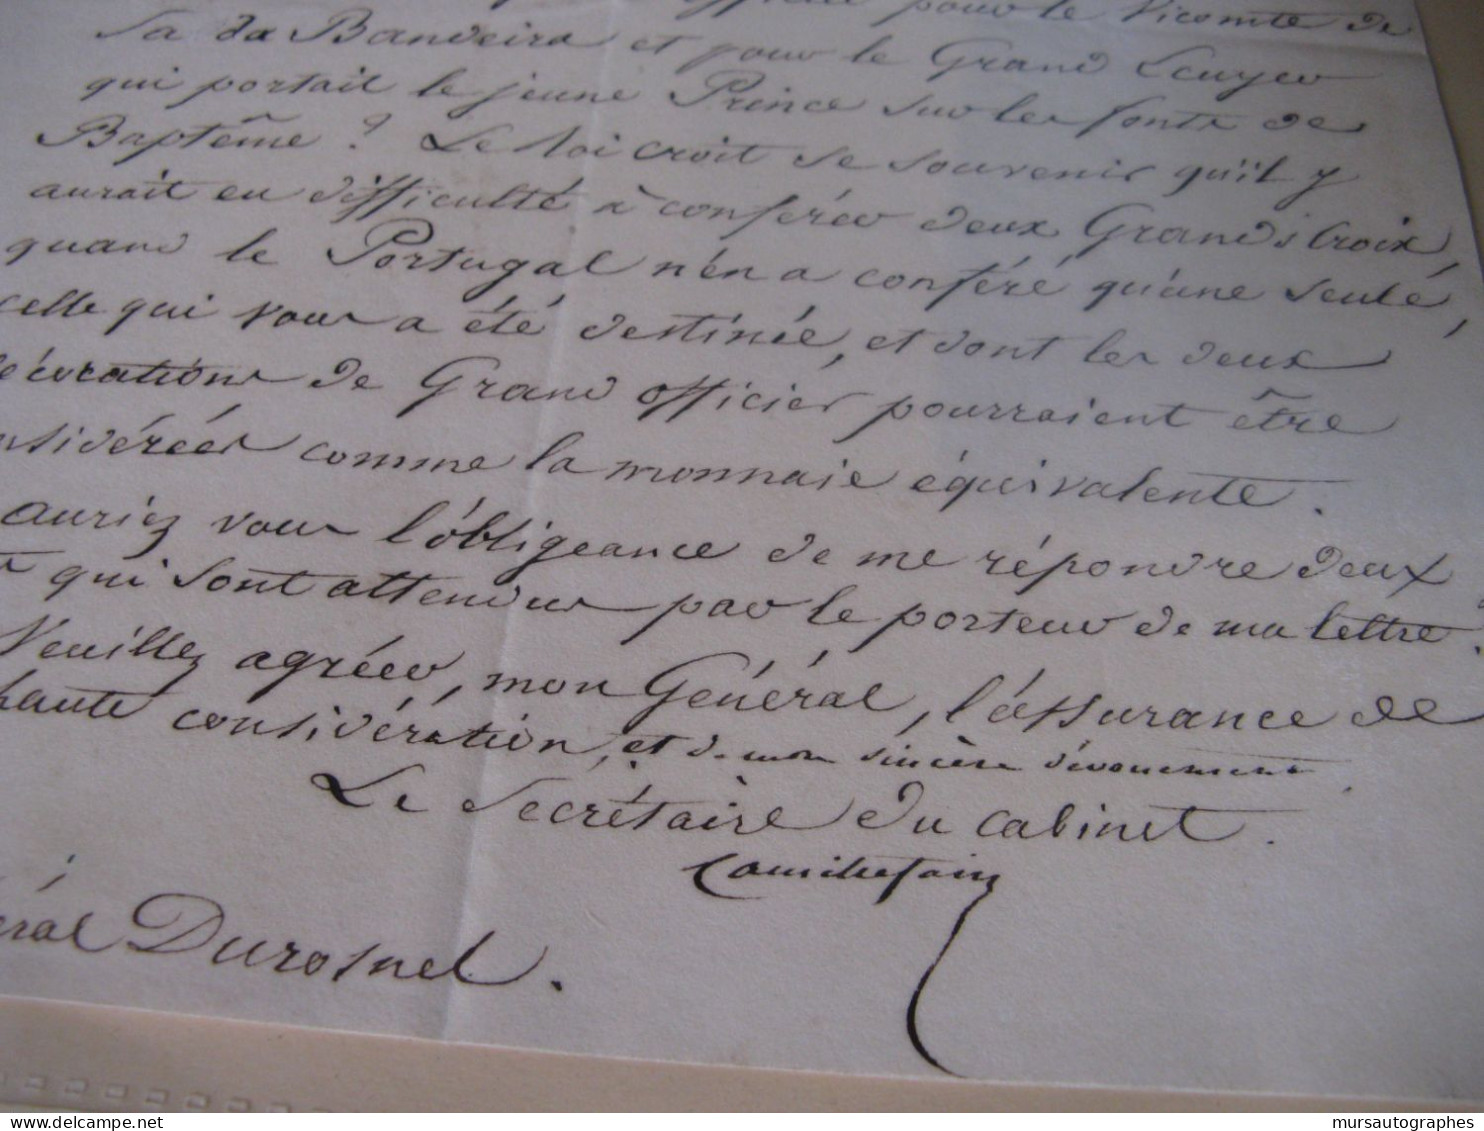 officier pour le Vicomte de
Sa da Bandeira et pour le Grand Ecuyer
qui portait le jeune Prince sur les fonts de
Baptême ? Le Roi croit se souvenir qu'il y
aurait eu difficulté à conférer deux Grands Croix,
quand le Portugal n'en a conféré qu'une seule,
celle qui vous a été destinée, et dont les deux
décorations de Grand officier pourraient être
considérées comme la monnaie équivalente.
auriez vous l'obligeance de me répondre deux
qui sont attendus par le porteur de ma lettre.
Veuillez agréer, mon Général, l'assurance de
haute considération, et de mon sincère dévouement.
Le Secrétaire du Cabinet.
Camille fain
éral Durosnel.
delcampe.net
mursautographes